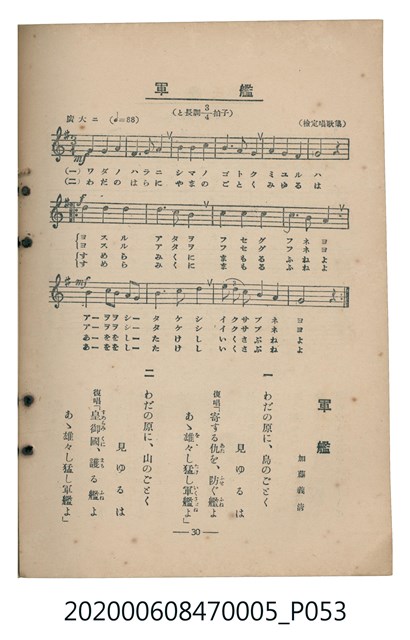 軍艦
(と長調 3/4 拍子)
(檢定唱歌集)
濶大ニ (♩=88)
mf
(一) ワダノハラニ シマノゴトクミユルハ
(二) わだのはらに やまのごとくみゆるは
f
ヨスル アタヲ フセグ フネヨ
ヨスル アタヲ フセグ フネヨ
すめら みくに まもる ふねよ
すめら みくに まもる ふねよ
mf
アーヲヲシ タケシ イクサブネヨ
アーヲヲシ タケシ イクサブネヨ
あーををし たけし いくさぶねよ
あーををし たけし いくさぶねよ
軍艦
加藤義清
一
わだの原に、島のごとく
見ゆるは
復唱「寄する仇を、防ぐ艦よ
あゝ雄々し猛し軍艦よ」
二
わだの原に、山のごとく
見ゆるは
復唱「皇御國、護る艦よ
あゝ雄々し猛し軍艦よ」
30
202000608470005_P053